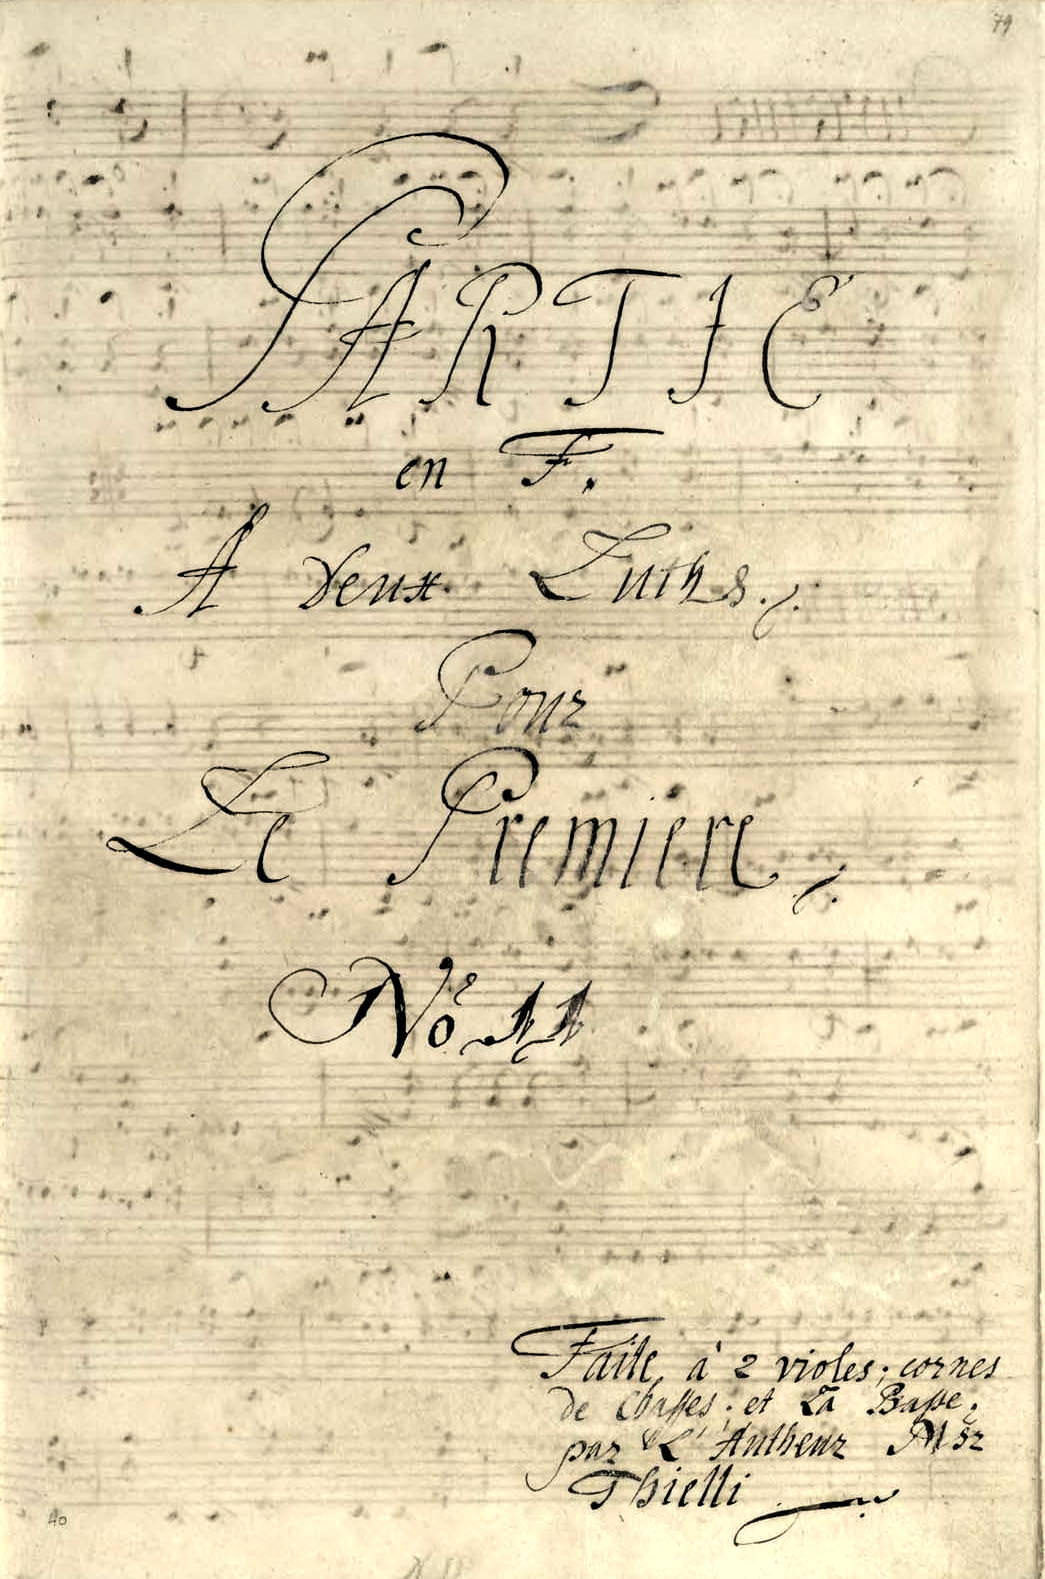 79
PARTIE
en F.
A Deux Luths.
Pour
Le Premiere
No 11
Faite à 2 violes; cornes
de Chasses; et La Basse.
par L'Autheur Msr
Thielli
40